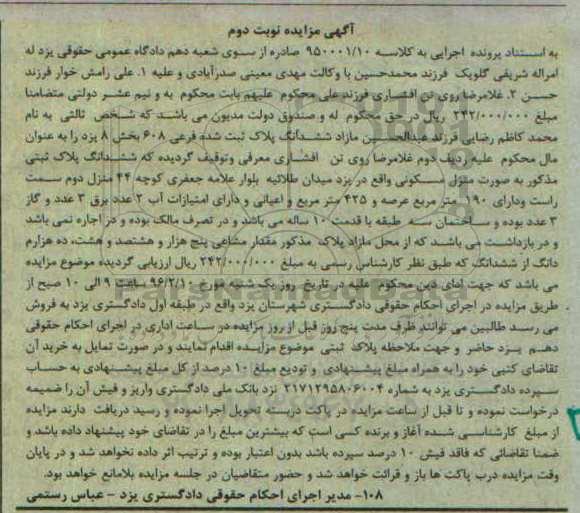 آگهی مزایده نوبت دوم
به استناد پرونده اجرایی به کلاسه ۹۵۰۰۰۱/۱۰ صادره از سوی شعبه دهم دادگاه عمومی حقوقی یزد له
امراله شریفی گلویک فرزند محمدحسین با وکالت مهدی معینی صدرآبادی و علیه ۱. علی رامش خوار فرزند
حسن ۲. غلامرضا روی تن افشاری فرزند علی محکوم علیهم بابت محکوم به و نیم عشر دولتی متضامنا
مبلغ ۲۴۲/۰۰۰/۰۰۰ ریال در حق محکوم له و صندوق دولت مدیون می باشد که شخص ثالثی به نام
محمد کاظم رضایی فرزند عبدالحسین مازاد ششدانگ پلاک ثبت شده فرعی ۶۰۸ بخش ۸ یزد را به عنوان
مال محکوم علیه ردیف دوم غلامرضا روی تن افشاری معرفی وتوقیف گردیده که ششدانگ پلاک ثبتی
مذکور به صورت منزل مسکونی واقع در یزد میدان طلائیه بلوار علامه جعفری کوچه ۴۴ منزل دوم سمت
راست ودارای ۱۹۰ متر مربع عرصه و ۴۲۵ متر مربع و اعیانی و دارای امتیازات آب ۲ عدد برق ۳ عدد و گاز
۳ عدد بوده و ساختمان سه طبقه با قدمت ۱۰ ساله می باشد و در تصرف مالک بوده و در اجاره نمی باشد
و در بازداشت می باشد که از محل مازاد پلاک مذکور مقدار مشاعی پنج هزار و هشتصد و هشت، ده هزارم
دانگ از ششدانگ که طبق نظر کارشناس رسمی به مبلغ ۲۴۲/۰۰۰/۰۰۰ ریال ارزیابی گردیده موضوع مزایده
می باشد که جهت ادای دین محکوم علیه در تاریخ روز یک شنبه مورخ ۹۶/۲/۱۰ ساعت ۹ الی ۱۰ صبح از
طریق مزایده در اجرای احکام حقوقی دادگستری شهرستان یزد واقع در طبقه اول دادگستری یزد به فروش
می رسد طالبین می توانند ظرف مدت پنج روز قبل از روز مزایده در ساعت اداری در اجرای احکام حقوقی
دهم یزد حاضر و جهت ملاحظه پلاک ثبتی موضوع مزایده اقدام نمایند و در صورت تمایل به خرید آن
تقاضای کتبی خود را به همراه مبلغ پیشنهادی و تودیع مبلغ ۱۰ درصد از کل مبلغ پیشنهادی به حساب
سپرده دادگستری یزد به شماره ۲۱۷۱۲۹۵۸۰۶۰۰۴ نزد بانک ملی دادگستری واریز و فیش آن را ضمیمه
درخواست نموده و تا قبل از ساعت مزایده در پاکت دربسته تحویل اجرا نموده و رسید دریافت دارند مزایده
از مبلغ کارشناسی شده آغاز و برنده کسی است که بیشترین مبلغ را در تقاضای خود پیشنهاد داده باشد و
ضمنا تقاضائی که فاقد فیش ۱۰ درصد سپرده باشد بدون اعتبار بوده و ترتیب اثر داده نخواهد شد و در پایان
وقت مزایده درب پاکت ها باز و قرائت خواهد شد و حضور متقاضیان در جلسه مزایده بلامانع خواهد بود.
۱۰۸- مدیر اجرای احکام حقوقی دادگستری یزد - عباس رستمی